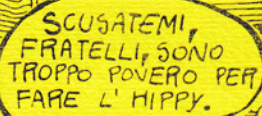 SCUSATEMI,
FRATELLI, SONO
TROPPO POVERO PER
FARE L' HIPPY.